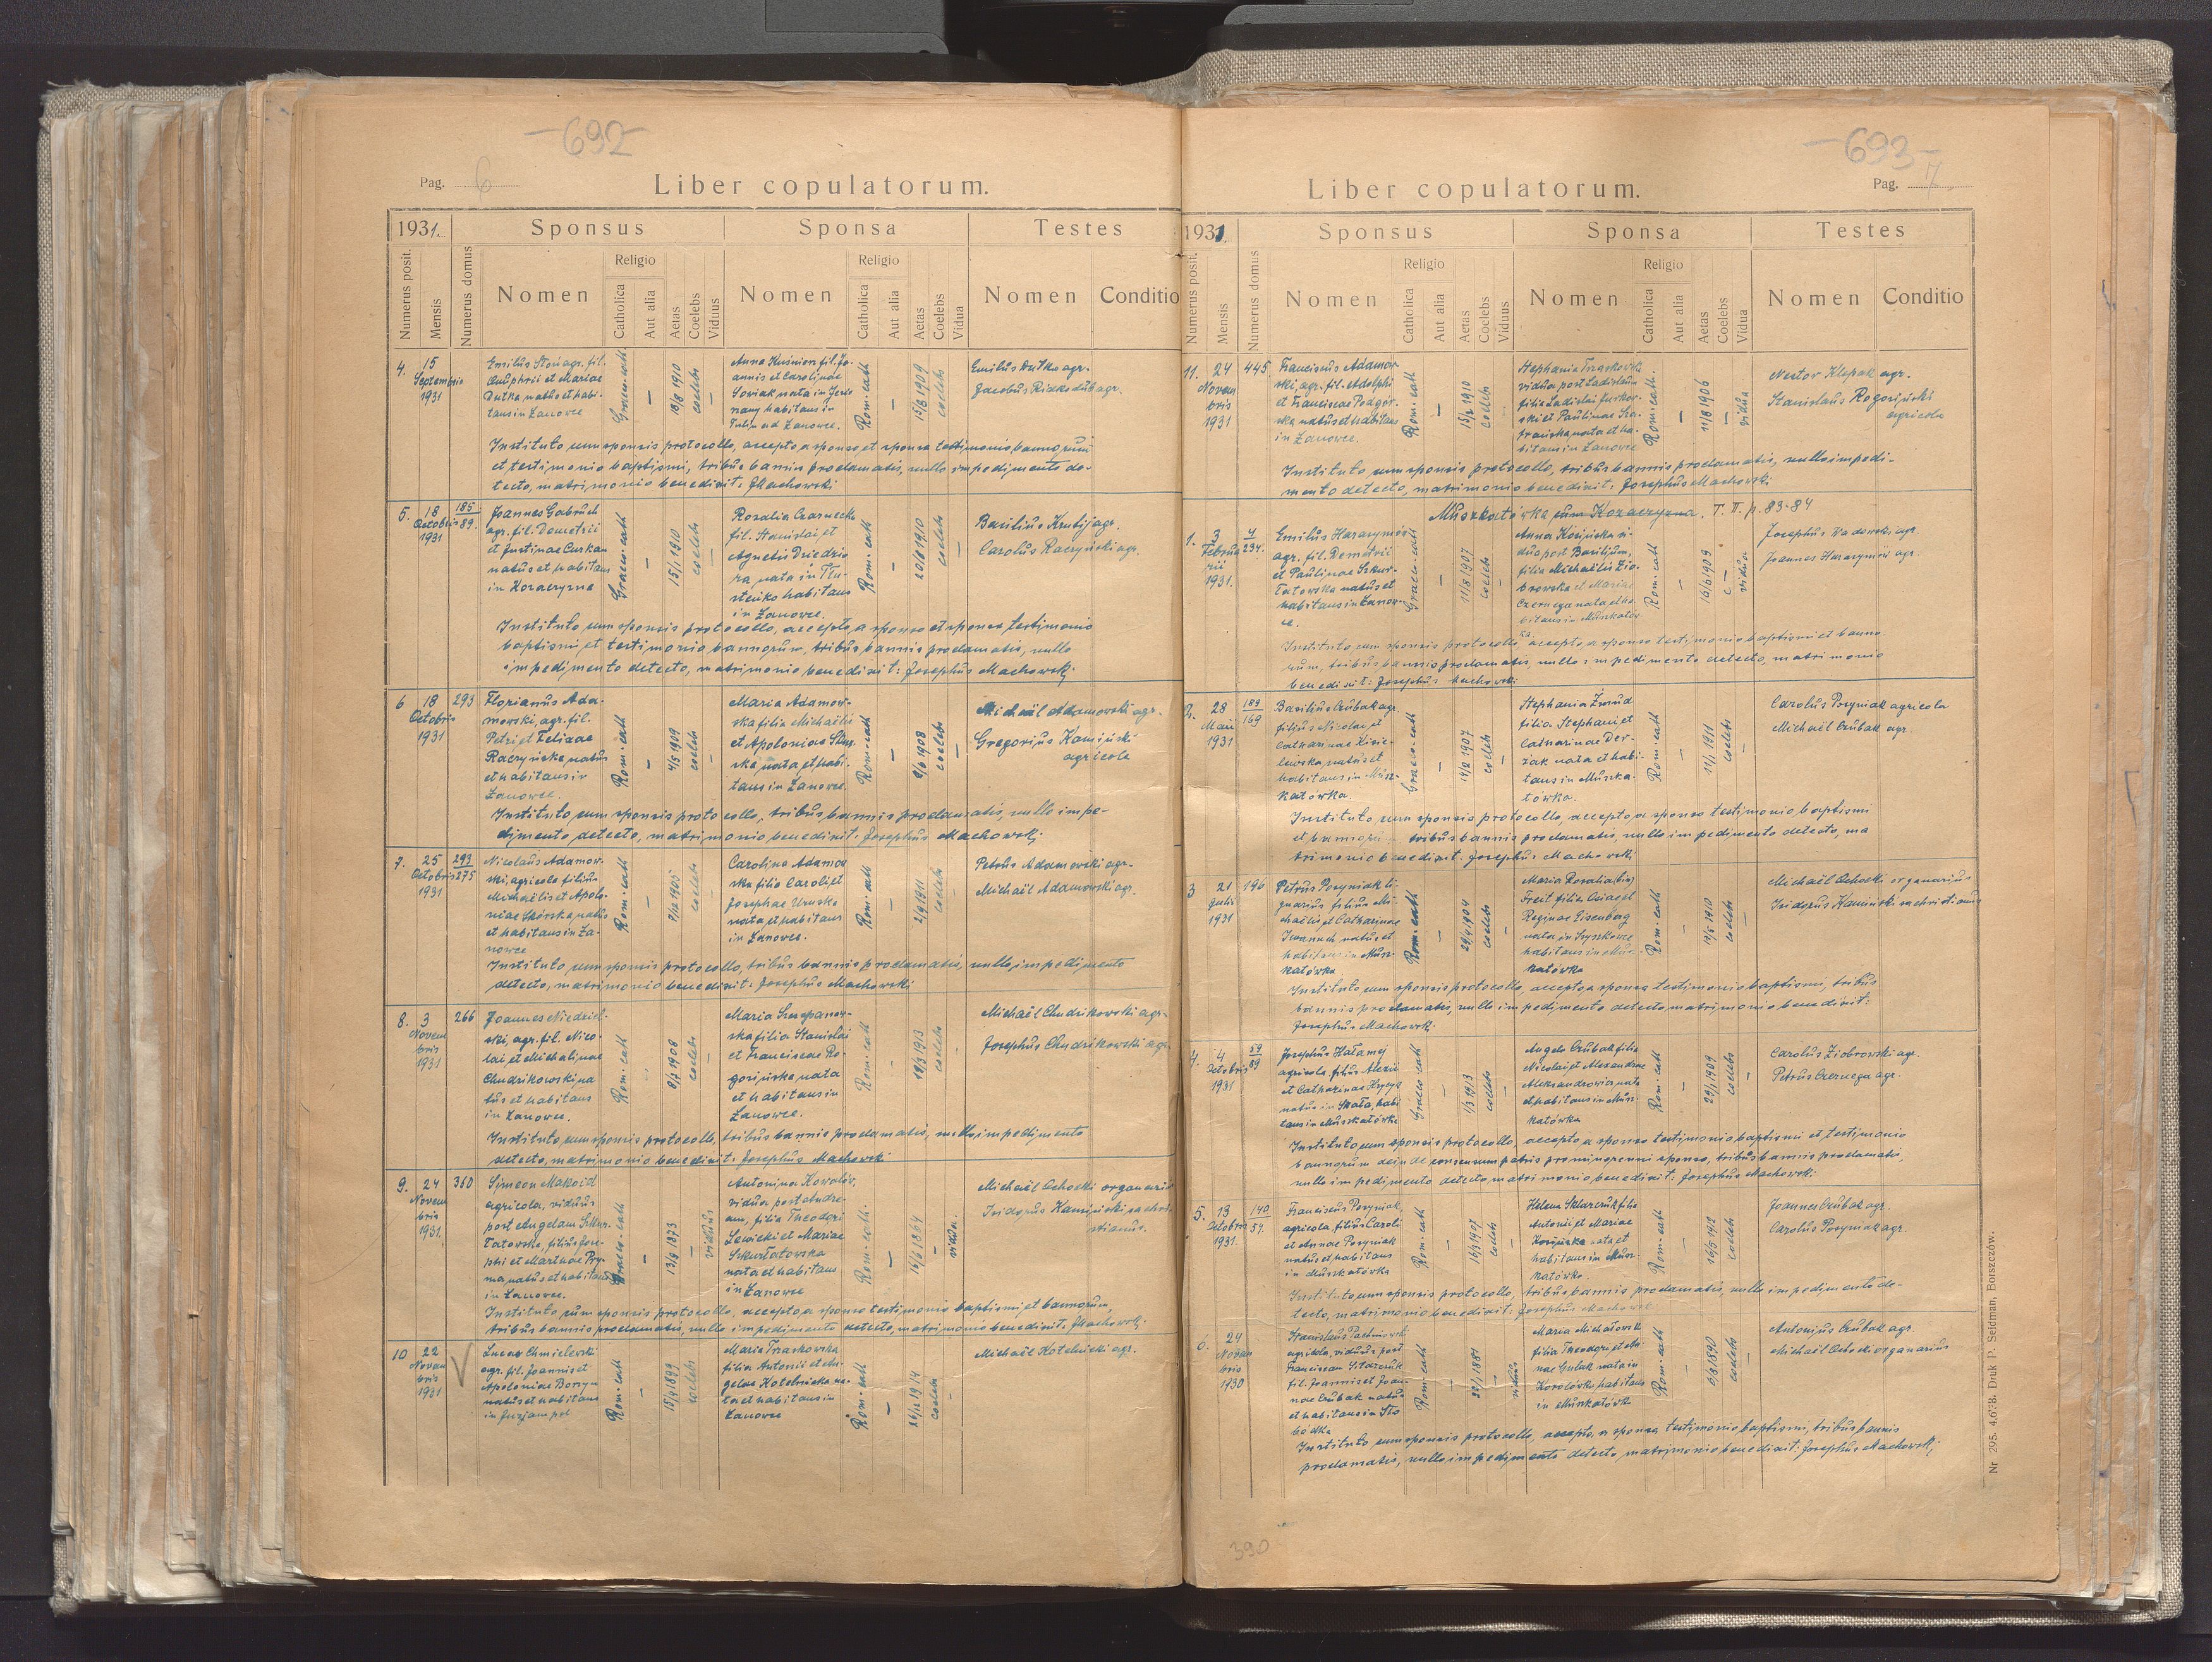 -692-
Pag. 6
Liber copulatorum.
1931.
Sponsus
Sponsa
Testes
Numerus posit.
Mensis
Numerus domus
Nomen
Religio
Catholica
Aut alia
Aetas
Coelebs
Viduus
Nomen
Religio
Catholica
Aut alia
Aetas
Coelebs
Vidua
Nomen
Conditio
4. 15 Septembris 1931
Emilius Stoń agr. fil.
Onuphrii et Mariae
Dutka natus et habi-
tans in Łanowce
Graeco-cath
—
18/8 1910
coelebs
—
Anna Kuśnierz fil. Jo-
annis et Carolinae
Sowiak nata in
habitans in
ad Łanowce.
Rom. cath
—
15/8 1909
coelebs
Emilius Dutka agr.
Jacobus agr.
Instituto cum sponsis protocollo, accepto a sponso et sponsa testimonio bannorum
et testimonio baptismi, tribus bannis proclamatis, nullo impedimento de-
tecto, matrimonio benedixit: JMachowski
5. 18 Octobris 1931
185/89.
Joannes Gabruch
agr. fil. Demetrii
et Justinae Curkan
natus et habitans
in Kozaczyzna
Graeco-cath
—
15/1 1910
coelebs
—
Rosalia Czarnecka
fil. Stanislai et
Agnetis Dziedzio
ra, nata in Tłu-
steńko habitans
in Łanowce.
Rom. cath
—
20/8 1910
coelebs
—
Basilius Krutij agr.
Carolus Raczyński agr.
Instituto cum sponsis protocollo, accepto a sponso et sponsa testimonio
baptismi et testimonio bannorum, tribus bannis proclamatis, nullo
impedimento detecto, matrimonio benedixit: Josephus Machowski
6 18 Octobris 1931
293
Florianus Ada-
mowski, agr. fil.
Petri et Feliciae
Raczyńska natus
et habitans in
Łanowce.
Rom. cath
—
4/5 1909
coelebs
—
Maria Adamow-
ska filia Michaëlis
et Apoloniae Skór-
ska nata et habi-
tans in Łanowce.
Rom. cath
—
9/6 1908
coelebs
—
Michaël Adamowski agr.
Gregorius Kamiński
agricola
Instituto cum sponsis protocollo, tribus bannis proclamatis, nullo impe-
dimento detecto, matrimonio benedixit: Josephus Machowski
7. 25 Octobris 1931
293/275
Nicolaus Adamow-
ski, agricola filius
Michaëlis et Apolo-
niae Skórska natus
et habitans in Ła-
nowce
Rom. cath
—
9/12 1905
coelebs
—
Carolina Adamow
ska filia Caroli et
Josephae Uruska
nata et habitans
in Łanowce.
Rom. cath
—
2/9 1911
coelebs
—
Petrus Adamowski agr.
Michaël Adamowski agr.
Instituto cum sponsis protocollo, tribus bannis proclamatis, nullo impedimento
detecto, matrimonio benedixit: Josephus Machowski
8. 3 Novembris 1931
266
Joannes Niedziel-
ski, agr. fil. Nico-
lai et Michalinae
Chudzikowski na
tus et habitans
in Łanowce.
Rom. cath
—
8/7 1908
coelebs
—
Maria Szczepanow-
ska filia Stanislai
et Franciscae Ro-
gozińska nata
et habitans in
Łanowce.
Rom. cath
—
19/3 1913
coelebs
—
Michaël Chudzikowski agr.
Josephus Chudzikowski agr.
Instituto cum sponsis protocollo, tribus bannis proclamatis, nullo impedimento
detecto, matrimonio benedixit: Josephus Machowski
9. 24 Novembris 1931.
360
Simeon Makoid
agricola, viduus
post Angelam Szkur-
łatowska, filius Jose-
phi et Marthae Pry-
ma natus et habitans
in Łanowce.
Graeco-cath
—
13/9 1873
—
viduus
Antonina Kowalów,
vidua post Andre-
am, filia Theodori
Lewicki et Mariae
Szkurłatowska
nata et habitans
in Łanowce
Rom. cath.
—
16/6 1864
—
vidua.
Michaël Ochocki organarius
Isidorus Kamiński sachri-
stianus.
Instituto cum sponsis protocollo, accepto a sponso testimonio baptismi et bannorum,
tribus bannis proclamatis, nullo impedimento detecto, matrimonio benedixit: JMachowski
10 22 Novembris 1931
Lucas Chmielewski
agr. fil. Joannis et
Apoloniae Borsyn
natus et habitans
in
Rom. cath
—
15/9 1899
coelebs
—
Maria Traskowska
filia Antonii et An-
gelae Kotelnicka na-
ta et habitans in
Łanowce
Rom. cath
—
26/12 1914
coelebs
—
Michaël Kotelnicki agr.
-693-
Liber copulatorum.
Pag. 7
1931.
Sponsus
Sponsa
Testes
Numerus posit.
Mensis
Numerus domus
Nomen
Religio
Catholica
Aut alia
Aetas
Coelebs
Viduus
Nomen
Religio
Catholica
Aut alia
Aetas
Coelebs
Vidua
Nomen
Conditio
11. 24 Novembris 1931
445
Franciscus Adamow
ski, agr. fil. Adolphi
et Franciscae Podgór-
ska natus et habitans
in Łanowce.
Rom. cath
—
15/2 1910
coelebs
Stephania Traskowska
vidua post Ladislaum
filia Ladislai
ski et Paulinae Sza-
frańska nata et ha-
bitans in Łanowce
Rom. cath.
—
11/8 1906
—
vidua
Nestor Klepak agr.
Stanislaus Rogoziński
agricola
Instituto cum sponsis protocollo, tribus bannis proclamatis, nullo impedi-
mento detecto, matrimonio benedixit: Josephus Machowski
Muszkatówka cum Kozaczyzna. T. II. p. 83-84
1. 3 Februarii 1931.
4/234.
Emilius Harasymów
agr. fil. Demetrii
et Paulinae Szkur-
łatowska natus et
habitans in Łanow-
ce.
Graeco-cath
—
11/8 1907
coelebs
—
Anna Kosińska vi-
dua post Basilium,
filia Michaëlis Zio-
browska et Mariae
Czernega nata et ha-
bitans in Muszkatów-
ka
Rom. cath
—
16/6 1909
—
vidua
Josephus Wadowski agr
Joannes Harasymów agr
Instituto cum sponsis protocollo, accepto a sponso testimonio baptismi et banno-
rum, tribus bannis proclamatis, nullo impedimento detecto, matrimonio
benedixit: Josephus Machowski
2. 28 Maii 1931
189/169
Basilius Czubak agr.
filius Nicolai et
Catharinae Kisie-
lewska, natus et
habitans in Musz-
katówka.
Graeco-cath
—
14/2 1907
coelebs
—
Stephania Żmud
filia Stephani et
Catharinae Der-
żak nata et habi-
tans in Muszka-
tówka.
Rom. cath
—
11/1 1911
coelebs
—
Carolus Posyniak agricola
Michaël Czubak agr.
Instituto cum sponsis protocollo, accepto a sponso testimonio baptismi
et bannorum tribus bannis proclamatis, nullo impedimento detecto, ma
trimonio benedixit: Josephus Machowski
3 21 Julii 1931
196
Petrus Posyniak li-
gnarius filius Mi-
chaëlis et Catharinae
Iwanuch natus et
habitans in Musz-
katówka
Rom. cath
—
29/4 1904
coelebs
—
Maria Rosalia (bis)
Freit filia Chiae et
Reginae Eisenberg
nata in Szyszkowce
habitans in Musz-
katówka
Rom. cath
—
19/5 1910
coelebs
—
Michaël Ochocki organarius
Isidorus Kamiński sachristianus
Instituto cum sponsis protocollo, accepto a sponsa testimonio baptismi, tribus
bannis proclamatis, nullo impedimento detecto matrimonio benedixit:
Josephus Machowski
4. 4 Octobris 1931
59/89
Josephus Hałamej
agricola, filius Alexii
et Catharinae Hrycyś
natus in Skała, habi
tans in Muszkatówka
Graeco-cath
—
1/3 1913
coelebs
—
Angela Czubak filia
Nicolai et Alexandrae
Aleksandrowicz nata
et habitans in Musz-
katówka
Rom. cath
—
29/1 1909
coelebs
—
Carolus Ziobrowski agr.
Petrus Czernega agr.
Instituto cum sponsis protocollo, accepto a sponso testimonio baptismi et testimonio
bannorum deinde consensum patris pro minorenni sponso, tribus bannis proclamatis,
nullo impedimento detecto, matrimonio benedixit: Josephus Machowski
5. 13 Octobris 1931.
140/57.
Franciscus Posyniak,
agricola, filius Caroli
et Annae Posyniak
natus et habitans
in Muszkatówka
Rom. cath
—
16/9 1907
coelebs
—
Helena Szklarczuk filia
Antonii et Mariae
Kosińska nata et
habitans in Musz-
katówka.
Rom. cath
—
16/5 1912
coelebs
—
Joannes Czubak agr.
Carolus Posyniak agr.
Instituto cum sponsis protocollo, tribus bannis proclamatis, nullo impedimento de-
tecto, matrimonio benedixit: Josephus Machowski
6. 24 Novembris 1930
Stanislaus Pachnowski
agricola, viduus post
Franciscam Szklarczuk
fil. Joannis et Joan-
nae Czubak natus
et habitans in Sło
bódka
Rom. cath
—
22/1 1881
—
viduus
Maria Michałowska
filia Theodori et An-
nae Gulak nata in
Korolówka, habitans
in Muszkatówka
Rom. cath
—
6/8 1890
coelebs
—
Antonius Czubak agr.
Michaël Ochocki organarius
Instituto cum sponsis protocollo, accepto, a sponsa testimonio baptismi, tribus bannis
proclamatis, nullo impedimento detecto, matrimonio benedixit: Josephus Machowski
Nr 295. Druk P. Seidman, Borszczów.
390